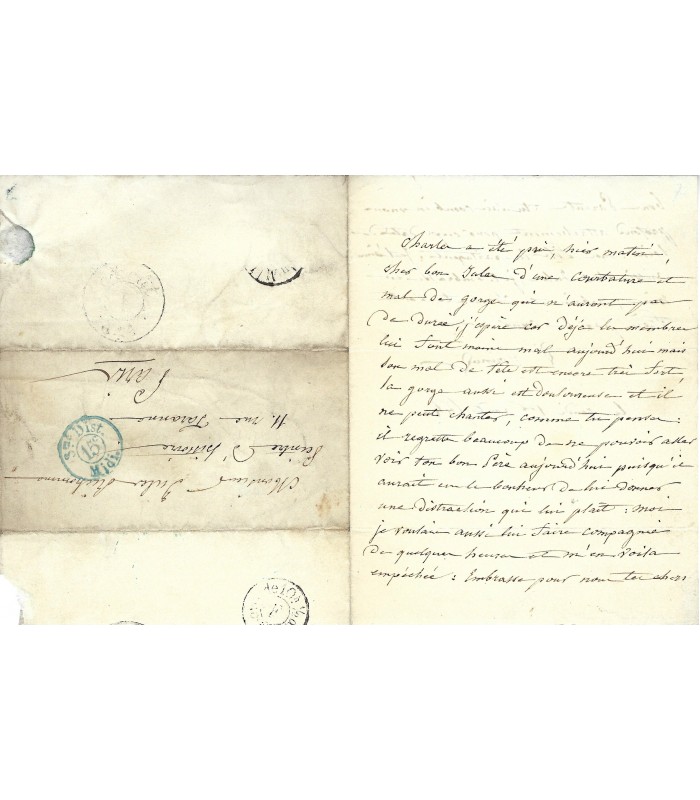 Monsieur Jules Richomme
Peintre d'histoire
11. rue Taranne
Paris
Dist.
15
Charles a été pris, hier matin,
cher bon Jules d'une courbature et
mal de gorge qui n'auront pas
de durée, j'espère car déjà les membres
lui font moins mal aujourd'hui mais
son mal de tête est encore très fort
la gorge aussi est douloureuse et il
ne peut chanter, comme tu penses :
il regrette beaucoup de ne pouvoir aller
voir ton bon Père aujourd'hui puisqu'il
aurait eu le bonheur de lui donner
une distraction qui lui plaît : moi
je voulais aussi lui faire compagnie
de quelques heures et m'en voilà
empêchée : Embrasse pour nous tes chers